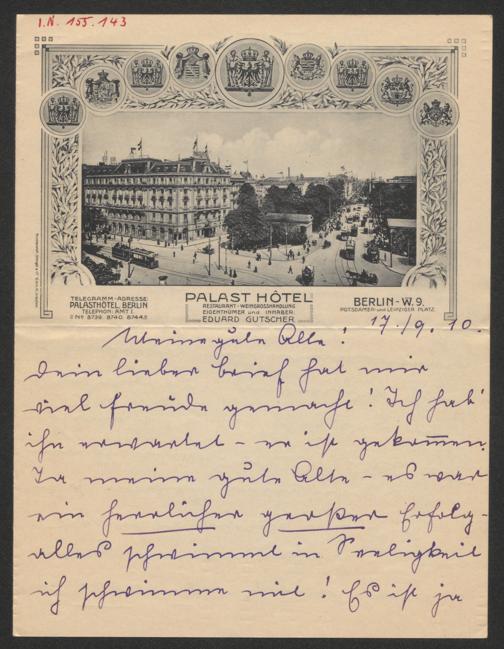 I.N. 155.143
TELEGRAMM-ADRESSE:
PALASTHÔTEL BERLIN
TELEPHON: AMT I.
Nº 8739. 8740. 8744.
PALAST HÔTEL
RESTAURANT - WEINGROSSHANDLUNG
EIGENTHÜMER und INHABER:
EDUARD GUTSCHER
BERLIN-W.9.
POTSDAMER- und LEIPZIGER PLATZ.
17./9. 10.
Meine gute Alte!
Dein lieber brief hat mir
viel freude gemacht! Ich hab'
ihn erwartet – er ist gekommen.
Ja meine gute Alte – es war
ein herrlicher großer Erfolg –
alles schwimmt in Seeligkeit
ich schwimme mit! Es ist ja